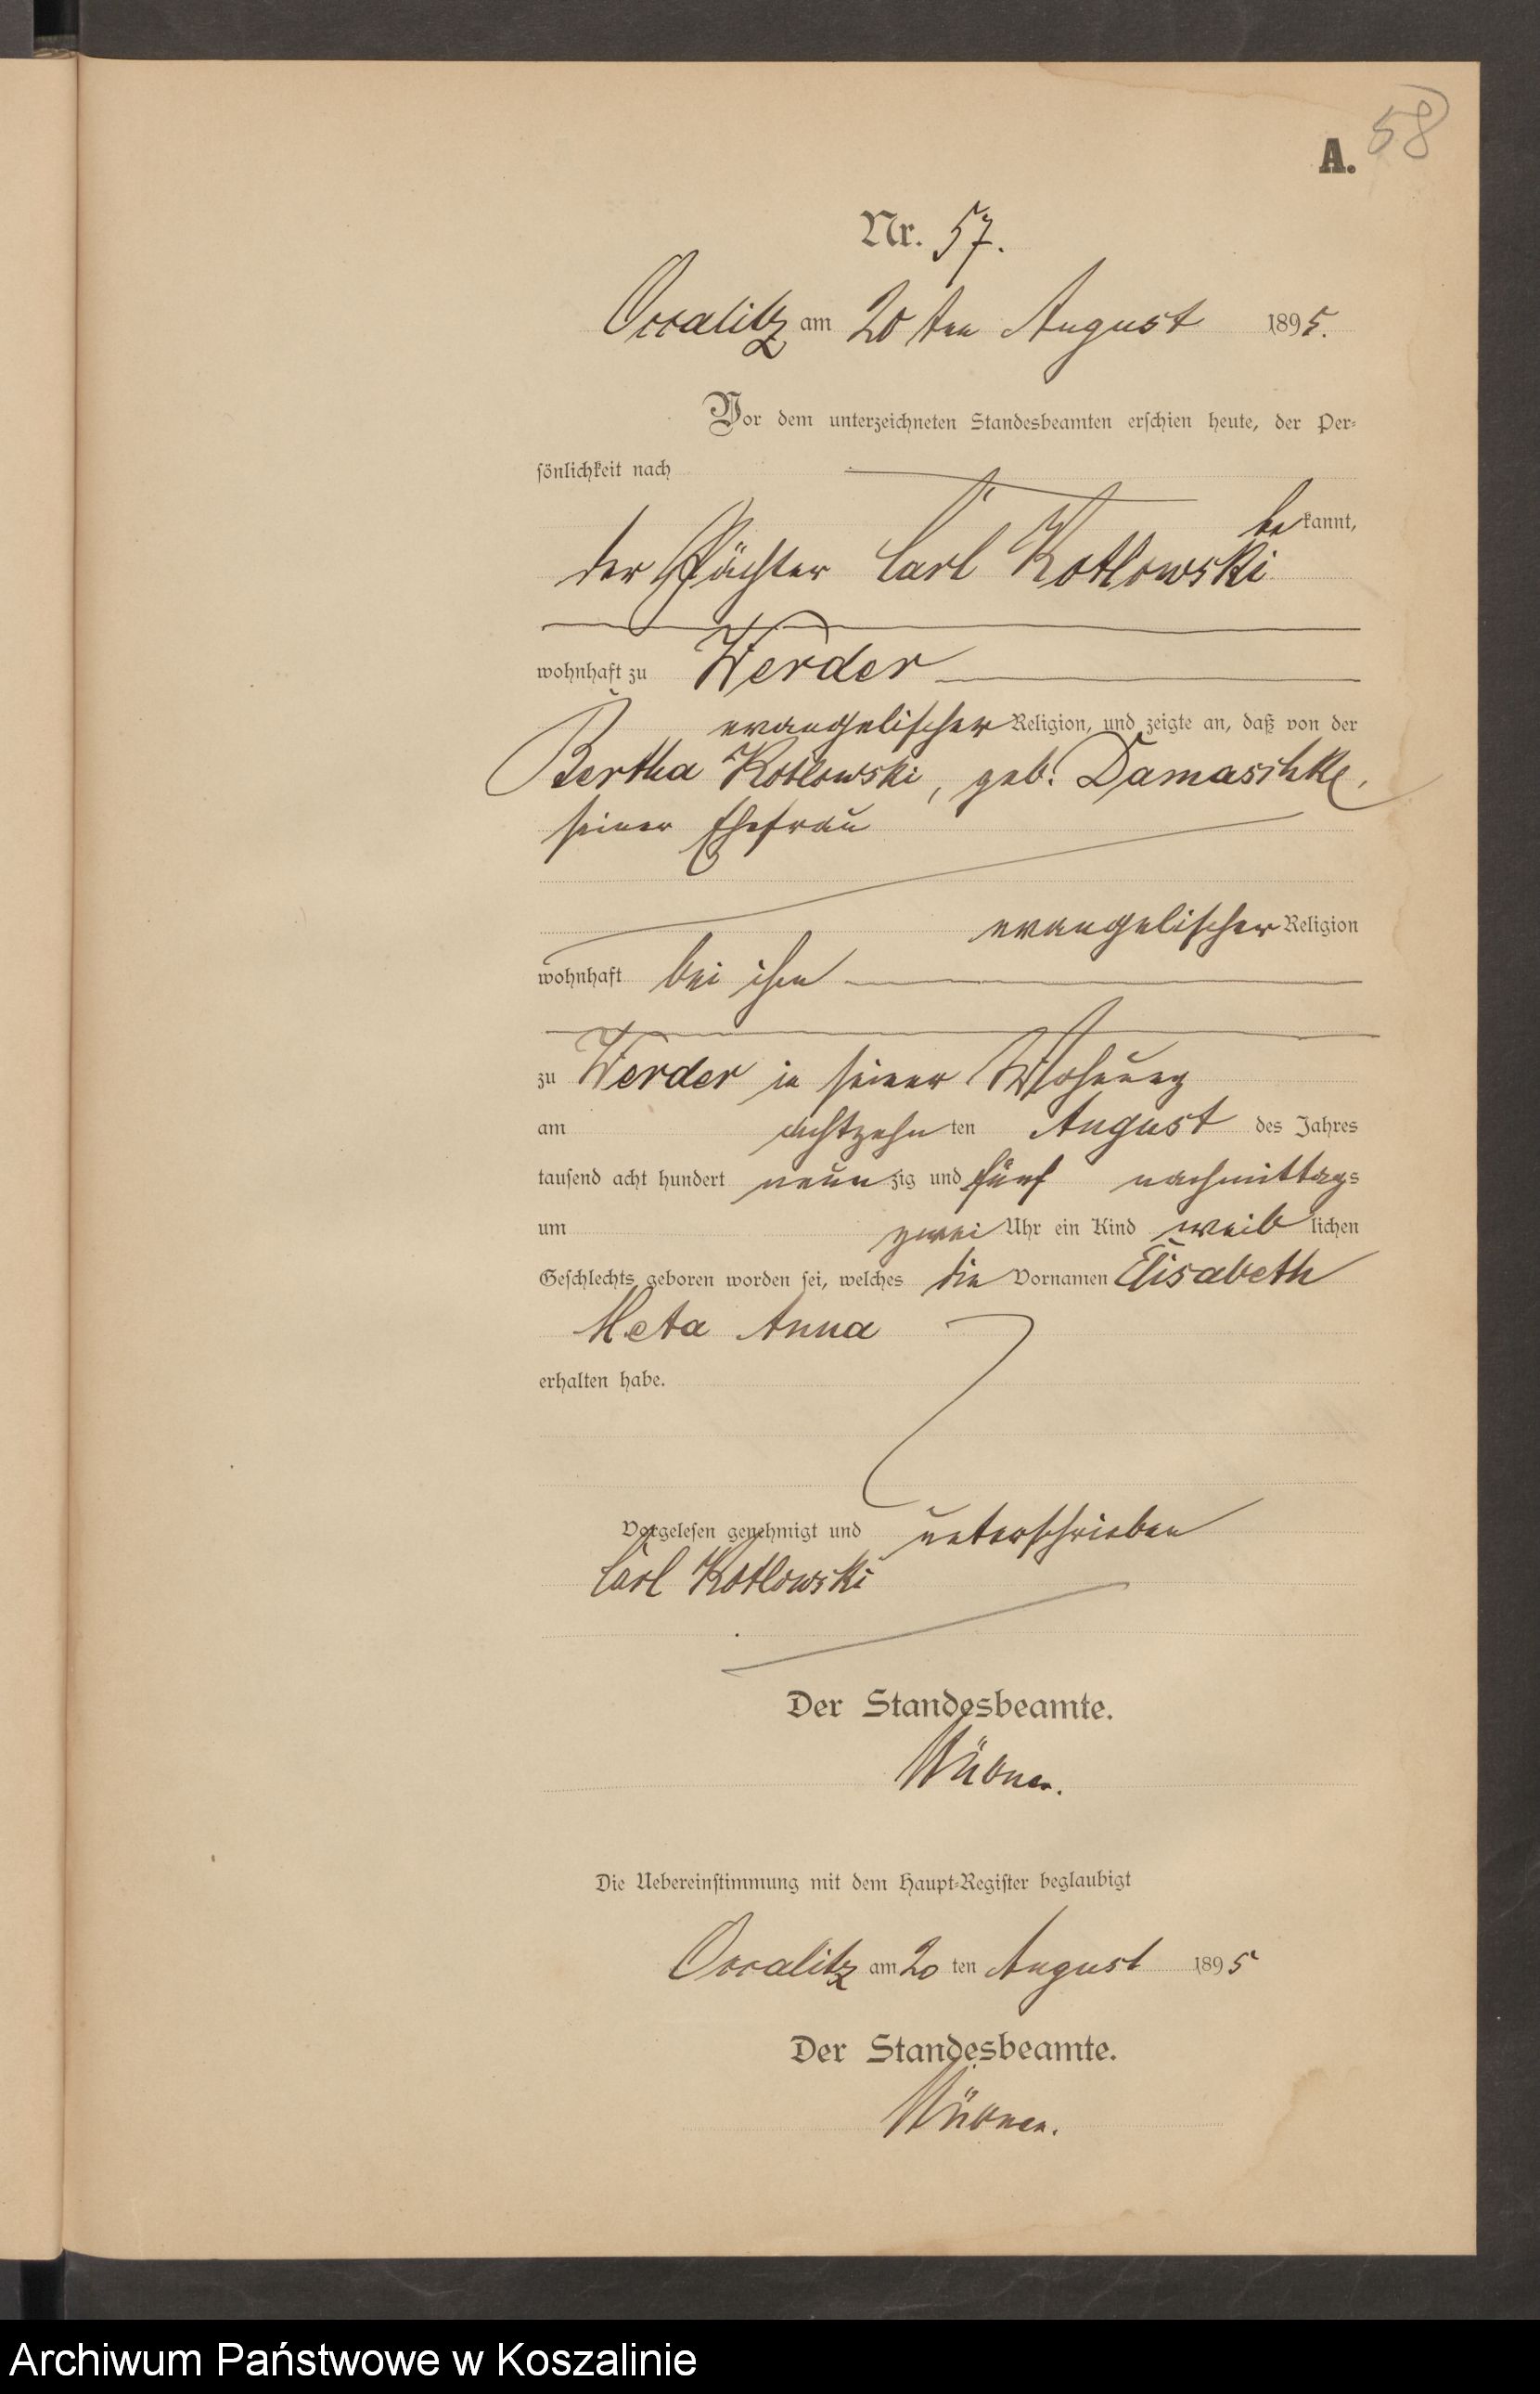 58
A.
Nr. 57.
Occalitz am 20 ten August 1895.
Vor dem unterzeichneten Standesbeamten erschien heute, der Per-
sönlichkeit nach
bekannt,
der Pächter Carl Kotlowski
wohnhaft zu Werder
evangelischer Religion, und zeigte an, daß von der
Bertha Kotlowski, geb. Damaschke,
seiner Ehefrau
evangelischer Religion
wohnhaft bei ihm
zu Werder in seiner Wohnung
am achtzehn ten August des Jahres
tausend acht hundert neun zig und fünf nachmittags
um zwei Uhr ein Kind weiblichen
Geschlechts geboren worden sei, welches die Vornamen Elisabeth
Meta Anna
erhalten habe.
Vorgelesen genehmigt und unterschrieben
Carl Kotlowski
Der Standesbeamte.
Die Uebereinstimmung mit dem Haupt-Register beglaubigt
Occalitz am 20 ten August 1895
Der Standesbeamte.
Archiwum Państwowe w Koszalinie